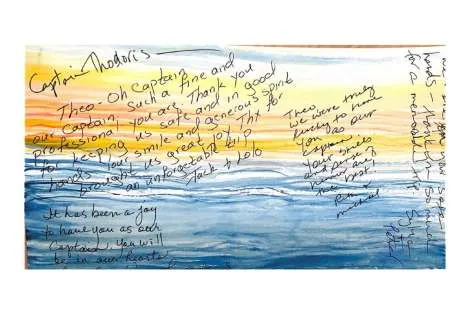 Captain Thodoris
Theo. Oh Captain
our Captain, such a fine and
professional you are. Thank you
for keeping us safe and in good
hands. Your smile and generous spirit
brought us great joy. Thx for
an unforgettable trip
Jack + Lolo
Theo,
we were truly
lucky to have
you as our
Captain
Your smile
and sense of
humor are
the best
michael
It has been a joy
to have you as our
Captain. You will
be in our hearts
hands. Thank you so much
for a memorable trip
Sylvia